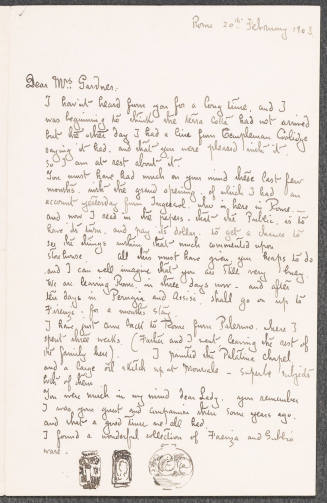 Rome 20th February 1903
Dear Mrs Gardner,
I hav'nt heard from you for a long time, and I
was beginning to think the terra cotta had not arrived
but the other day I had a line from Templeman Coolidge
saying it had. and that you were pleased with it.
so I am at rest about it.
You must have had much on your mind these last few
months. with the grand opening, of which I had an
account yesterday from who is here in Rome –
and now I read in the papers. that the Public. is to
have its turn. and pay its dollar to get a chance to
see the things within that much commented upon
storehouse. all this must have given you heaps to do
and I can well imagine that you are still very busy
We are leaving Rome in three days now – and after
ten days in Perugia and Assisi. shall go on up to
Firenze. for a months stay
I have just come back to Rome from Palermo. where I
spent three weeks (Father and I went leaving the rest of
the family here). I painted the Palatine chapel
and a large oil sketch up at Monreale – superb subjects
both of them.
You were much in my mind dear Lady. you remember
I was your guest and companion there some years ago.
and what a good time we all had.
I found a wonderful collection of Faenza and Gubbio
ware.